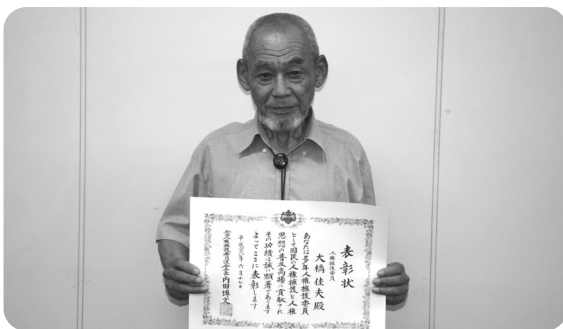 表彰状
人権擁護委員
大橋佳夫殿
あなたは多年人権擁護委員
として国民の人権擁護と人権
思想の普及高揚に貢献され
その功績は誠に顕著であります
よってここに表彰します
平成二八年六月七日
内田博文